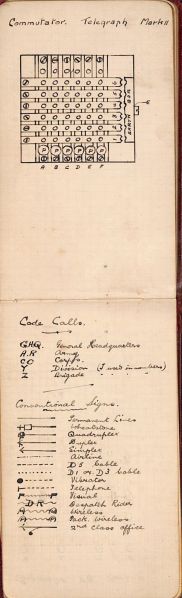 Commutator. Telegraph Mark II
A B C D E F
Code Calls.
G.H.Q. General Headquarters
A.R Army
CO Corps
Y Division
Z Brigade
Conventional Signs.
Permanent Lines
Wheatstone
Quadruplex
Duplex
Simplex
Airline
D5 Cable
D1 or D3 Cable
Vibrator
T Telephone
F F Visual
D R Despatch Rider
Wireless
Pack wireless
2nd class office